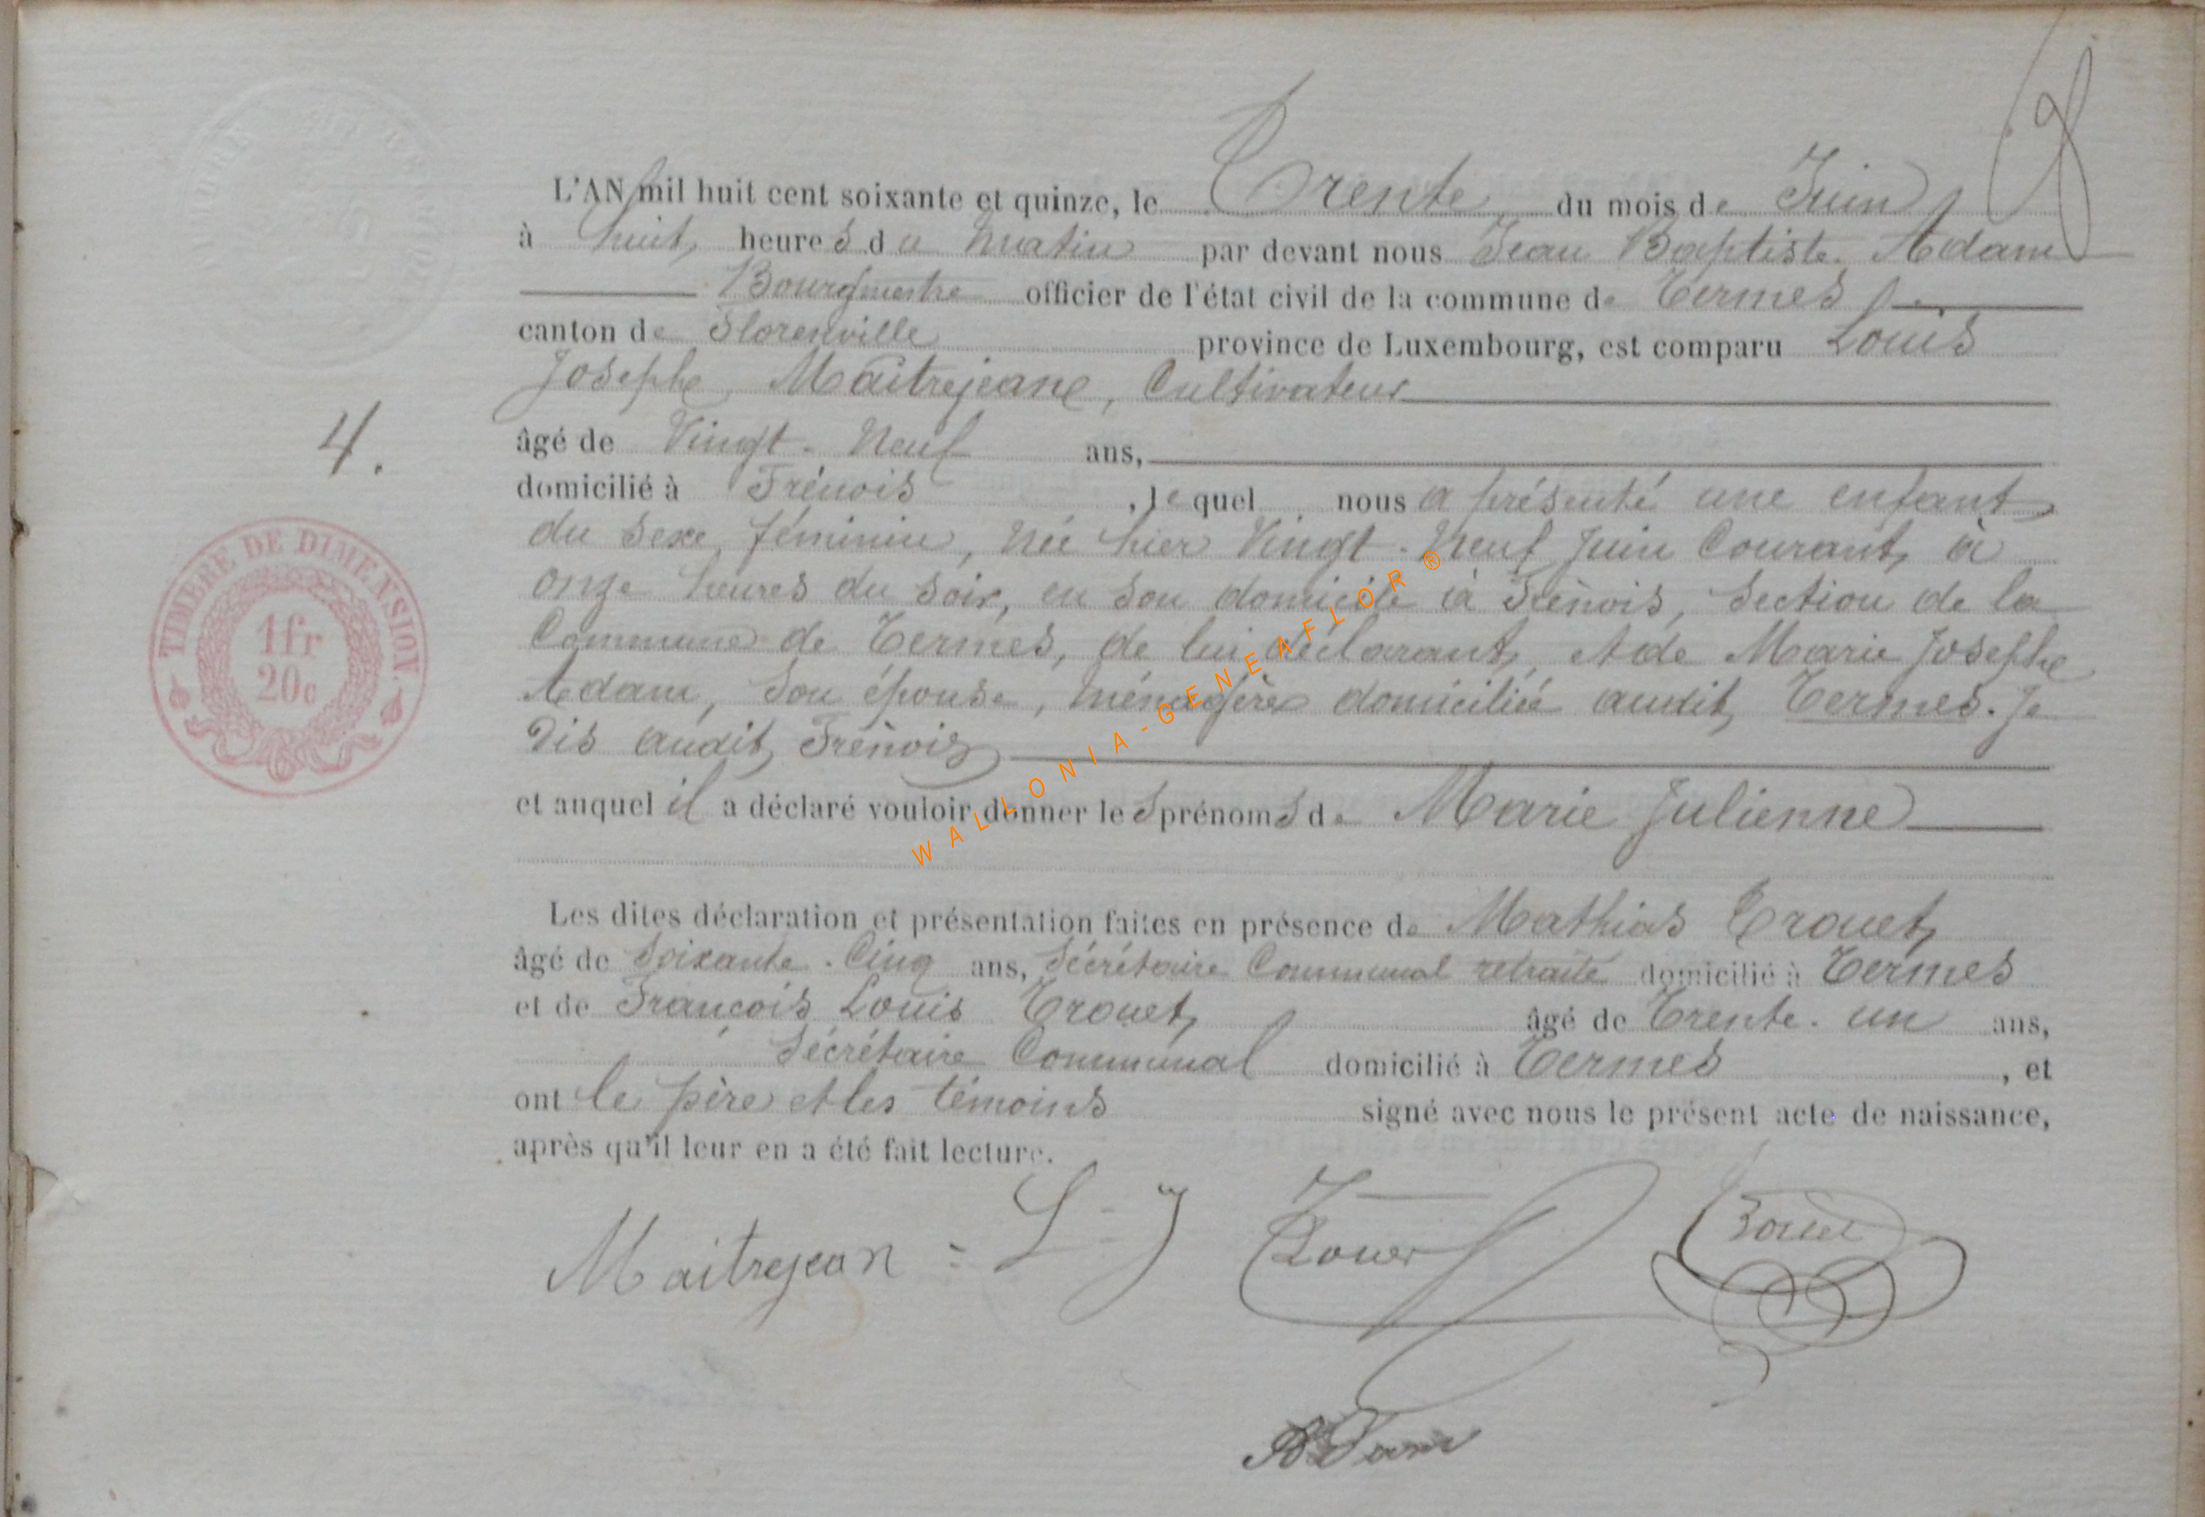 L'AN mil huit cent soixante et quinze, le Trente du mois de Juin
à huit heures du matin par devant nous Jean Baptiste Adam
Bourgmestre officier de l'état civil de la commune de Termes
canton de Florenville province de Luxembourg, est comparu Louis
Joseph Maitrejean, Cultivateur
4.
âgé de Vingt-Neuf ans,
domicilié à Frénois, lequel nous a présenté une enfant
du sexe féminin, née hier Vingt-Neuf Juin Courant, à
onze heures du soir, en son domicile à Frénois, Section de la
Commune de Termes, de lui déclarant, et de Marie Josephe
Adam, son épouse, ménagère domiciliée audit Termes. Je
dis audit Frénois
et auquel il a déclaré vouloir donner les prénoms de Marie Julienne
Les dites déclaration et présentation faites en présence de Mathias Trouet,
âgé de Soixante-Cinq ans, Sécrétaire Communal retraité domicilié à Termes
et de François Louis Trouet, âgé de Trente-un ans,
Sécrétaire Communal domicilié à Termes, et
ont le père et les témoins signé avec nous le présent acte de naissance,
après qu'il leur en a été fait lecture.
Maitrejean = L-J
Adam
TIMBRE DE DIMENSION
1fr
20c
WALLONIA-GENEAFLOR®